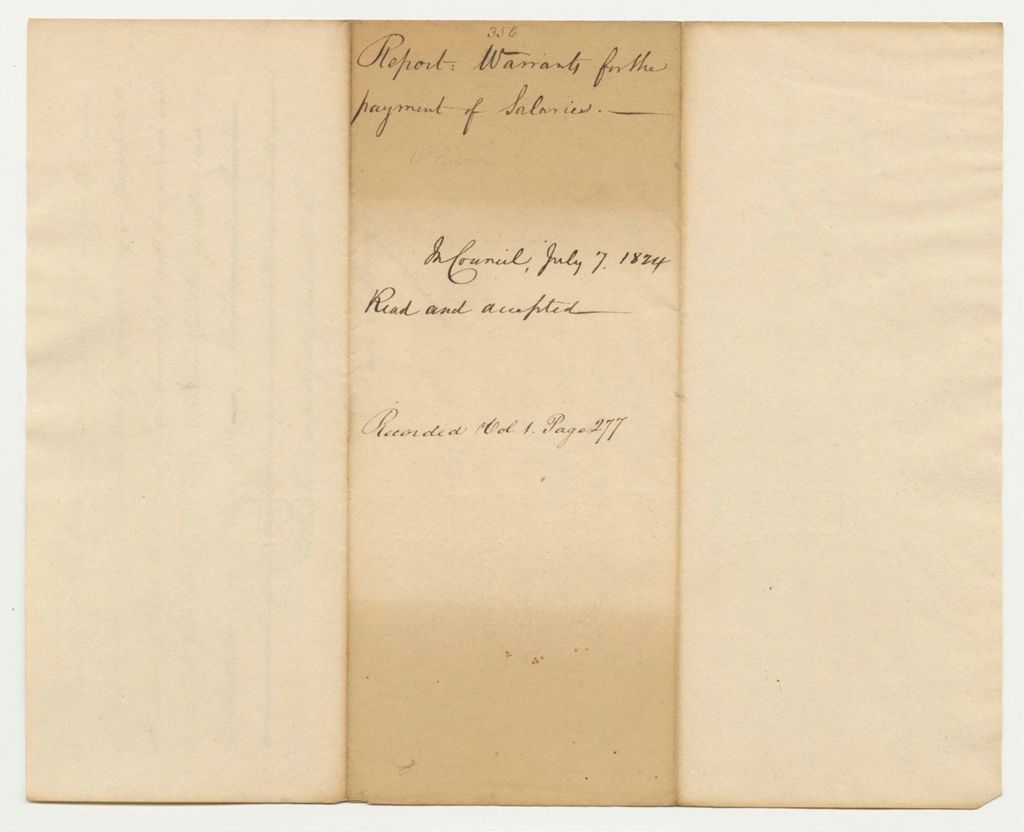 356
Report: Warrants for the
payment of Salaries.—
In Council, July 7. 1824
Read and accepted—
Recorded Vol 1. Page 277